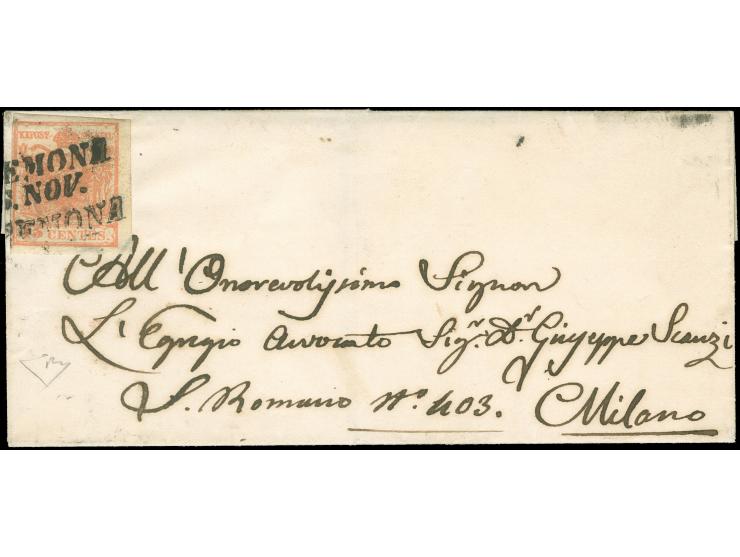 EMONA
S. NOV.
EMONA
CENTES.
All' Onorevolissimo Signor
L'Egregio Avvocato Sigr. Dr. Giuseppe Scanzi
S. Romano No. 403. Milano